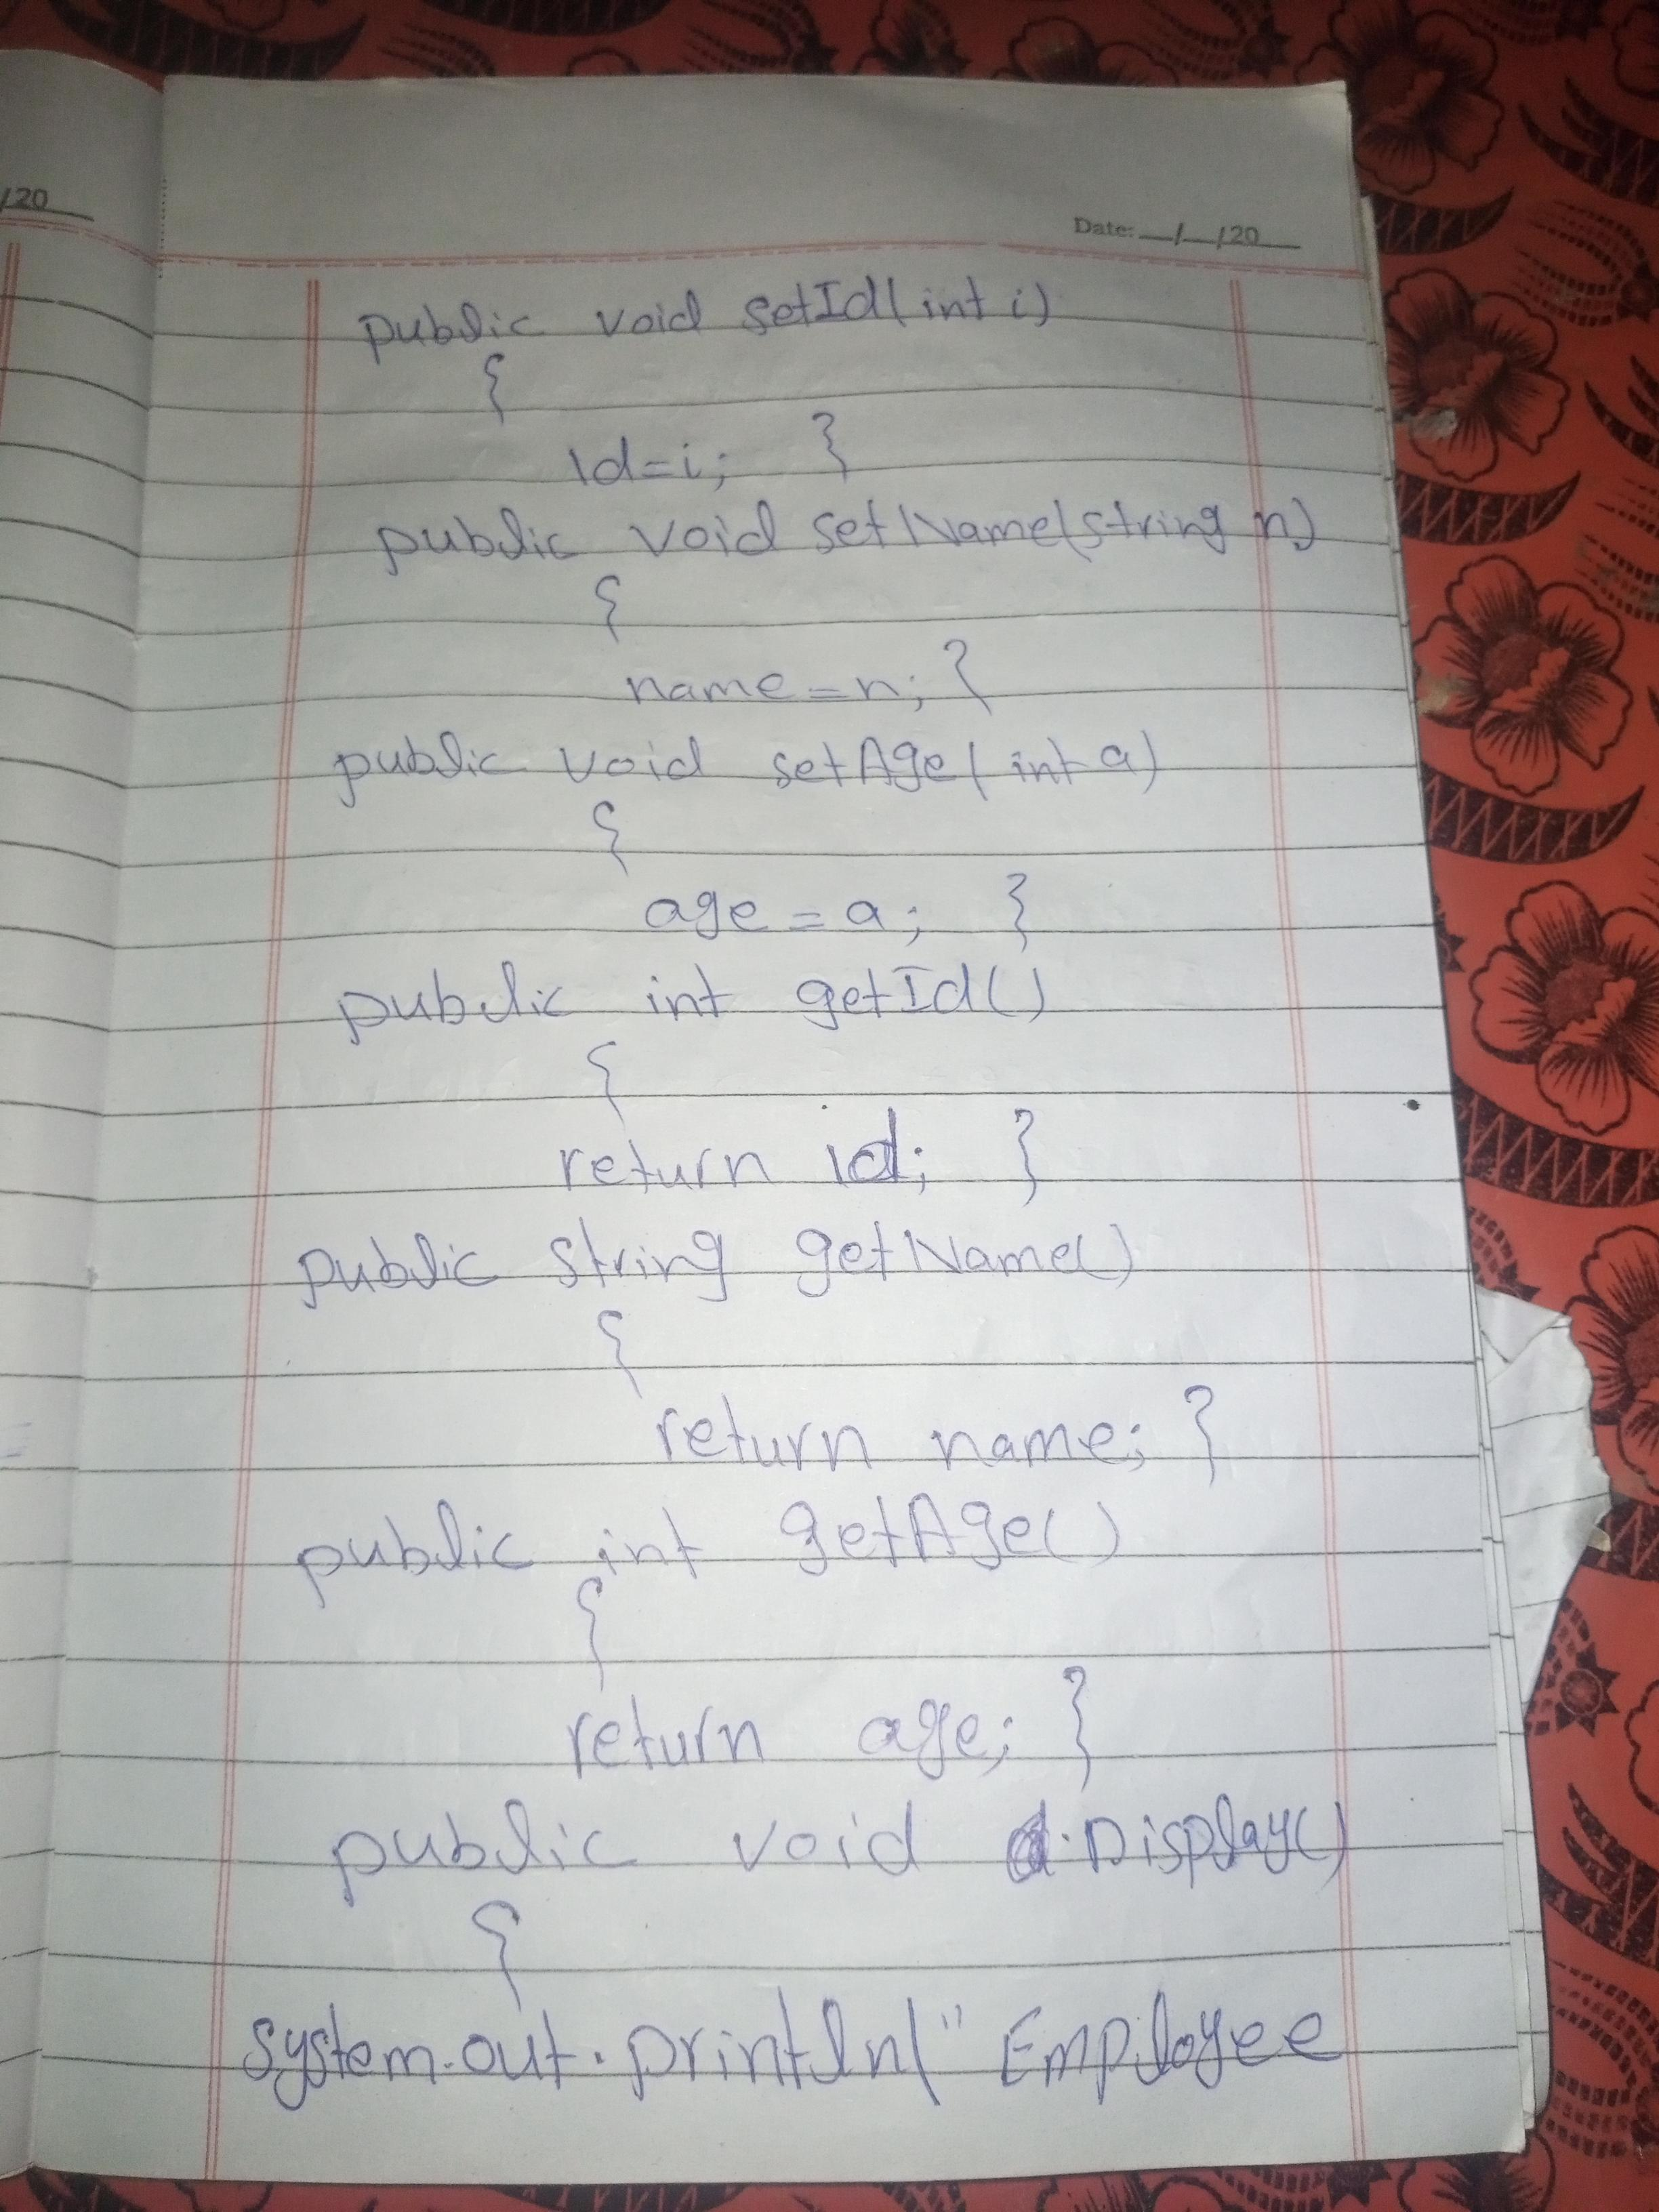 /20
Date: __/__/20__
public void setId(int i)
{
id=i; }
public void setName(string n)
{
name=n; }
public void setAge(int a)
{
age=a; }
public int getId()
{
return id; }
public string getName()
{
return name; }
public int getAge()
{
return age; }
public void Display()
{
system.out.println(" Employee